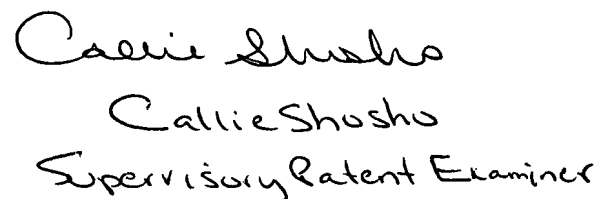 Callie Shosho
Callie Shosho
Supervisory Patent Examiner